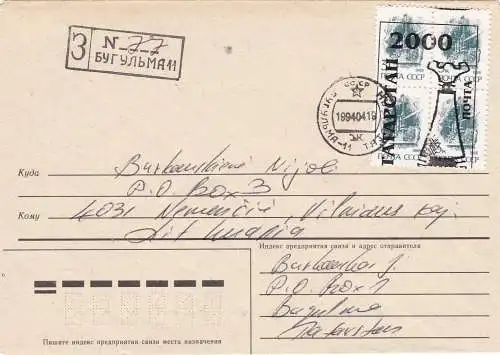 З
N 77
БУГУЛЬМА 11
2000
ТАТАРСТАН
ПОЧТА
ПОЧТА СССР
ПОЧТА СССР
СССР
19940419
Куда
P.O. Box-3
Кому
4031 Nemenčinė, Vilniaus raj.
Lithuania
Индекс предприятия связи и адрес отправителя
P.O. Box 1
Bugulma
Tatarstan
Пишите индекс предприятия связи места назначения